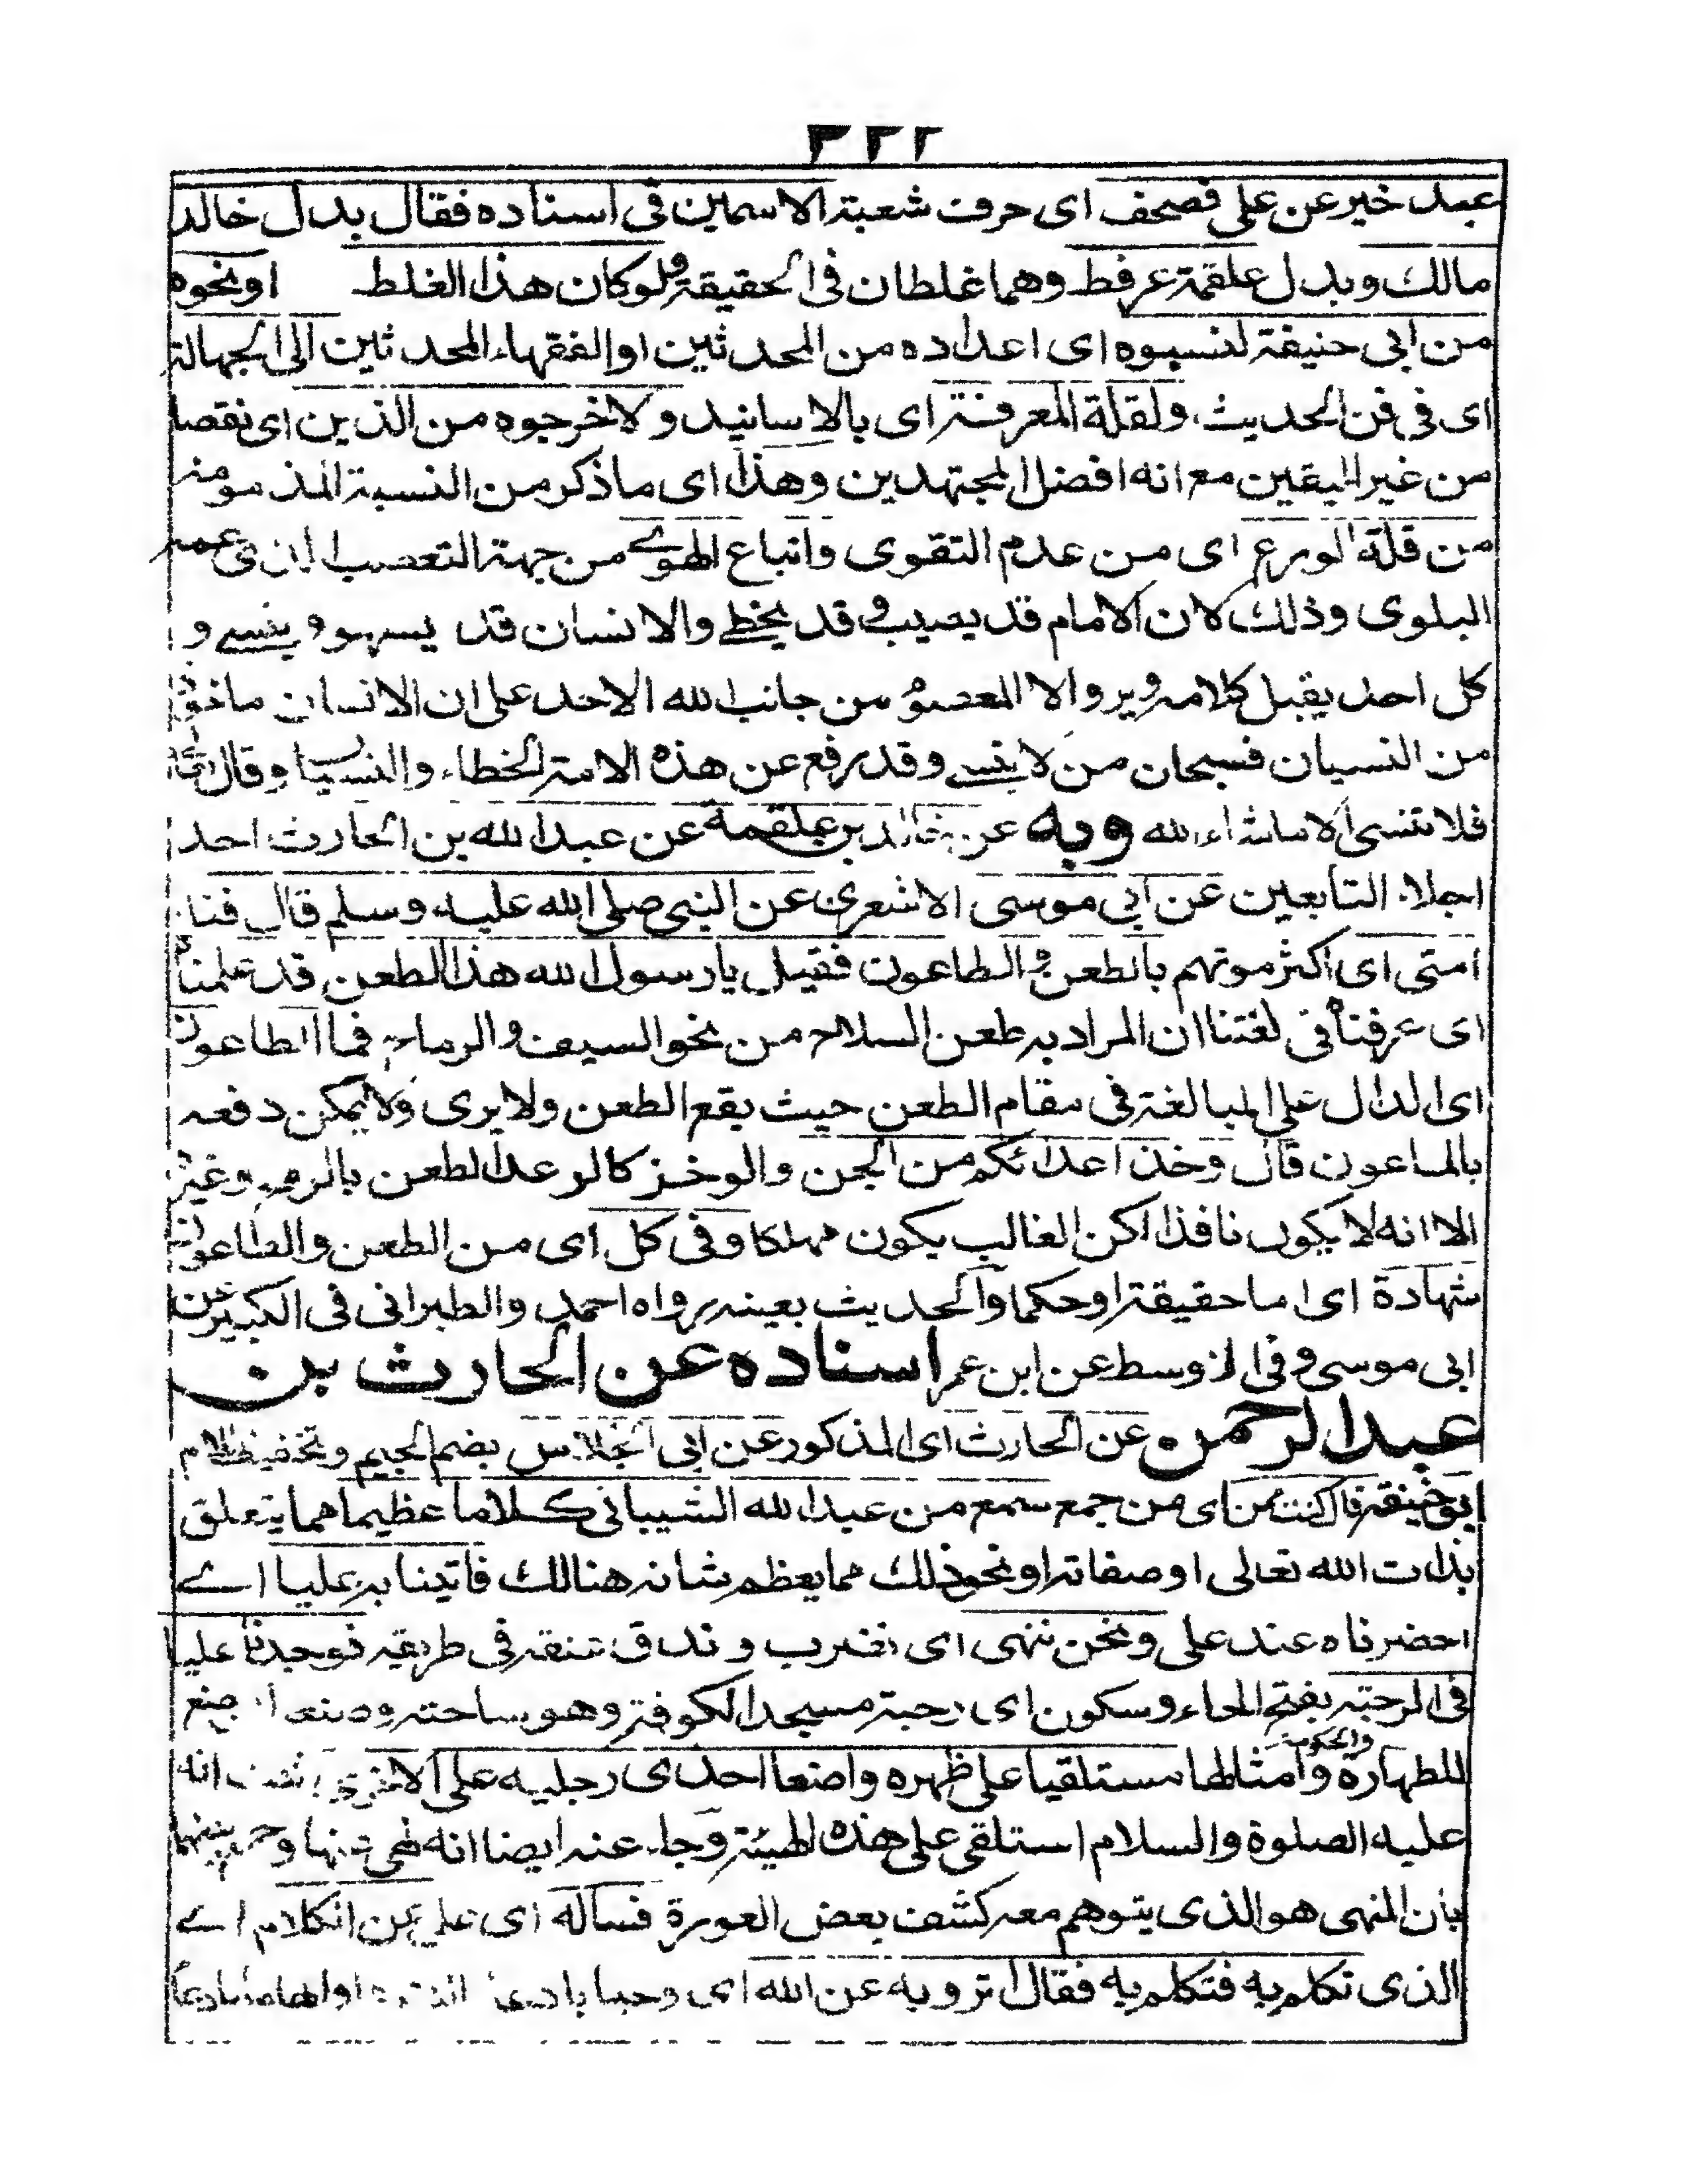 ٣٢٢
عبد خير عن على فصحف اى حرف شعبة الاسمين فى اسناده فقال بدل خالد
مالك وبدل علقمة عرفطه وهما غلطان فى الحقيقة ولو كان هذا الغلط او نحوه
من ابى حنيفة لنسبوه اى اعداده من المحدثين او الفقهاء المحدثين الى الجهالة
اى فى فن الحديث ولقلة المعرفة اى بالاسانيد ولاخرجوه من الدين اى نقصا
من غير اليقين مع انه افضل المجتهدين وهذا اى ما ذكر من النسبة المذمومة
من قلة الورع اى من عدم التقوى واتباع الهوى من جهة التعصب
البلوى وذلك لان الامام قد يصيب وقد يخطى والانسان قد يسهو وينسے و
كل احد يقبل كلامه ويرد الا المعصوم من جانب الله الاحد على ان الانسان ماخوذ
من النسيان فسبحان من لا ينسے وقد رفع عن هذه الامة الخطاء والنسيا وقال تعالى
فلا تنسى الا ما شاء الله وبه عن خالد بن علقمة عن عبد الله بن الحارث احد
اجلاء التابعين عن ابى موسى الاشعرى عن النبى صلى الله عليه وسلم قال فناء
امتى اى اكثر موتهم بالطعن والطاعون فقيل يا رسول الله هذا الطعن قد علمناه
اى عرفناه فى لغتنا ان المراد به طعن السلاح من نحو السيف والرماح فما الطاعون
اى الدال على المبالغة فى مقام الطعن حيث يقع الطعن ولا يرى ولا يمكن دفعه
بالماعون قال وخذ اعدائكم من الجن والوخز كالوعد الطعن بالرمح وغيره
الا انه لا يكون نافذا لكن الغالب يكون مهلكا وفى كل اى من الطعن والطاعون
شهادة اى اما حقيقة او حكما والحديث بعينه رواه احمد والطبرانى فى الكبير عن
ابى موسى وفى الاوسط عن ابن عمر اسناده عن الحارث بن
عبد الرحمن عن الحارث اى المذكور عن ابى الجلاس بضم الجيم وتخفيف اللام
ابو حنيفة قال كنت من اى من جمع سمع من عبد الله الشيبانى كلاما عظيما مما يتعلق
بذات الله تعالى او صفاته او نحو ذلك مما يعظم شانه هنالك فاتينا به عليا اے
احضرناه عند على ونحن ننهى اى نضرب وندق عنقه فى طريقه فوجدنا عليا
فى الرحبة بفتح الحاء وسكون اى رحبة مسجد الكوفة وهو ساحته
والحكومة
للطهارة وامثالها مستلقيا على ظهره واضعا احدى رجليه على الاخرى انه
عليه الصلوة والسلام استلقى على هذه الهيئة وجاء عنه ايضا انه نهى عنها وجمع بينهما
بان المنهى هو الذى يتوهم معه كشف بعض العورة فساله اى على عن الكلام اے
الذى تكلم به فتكلم به فقال اترويه عن الله اى وحيا